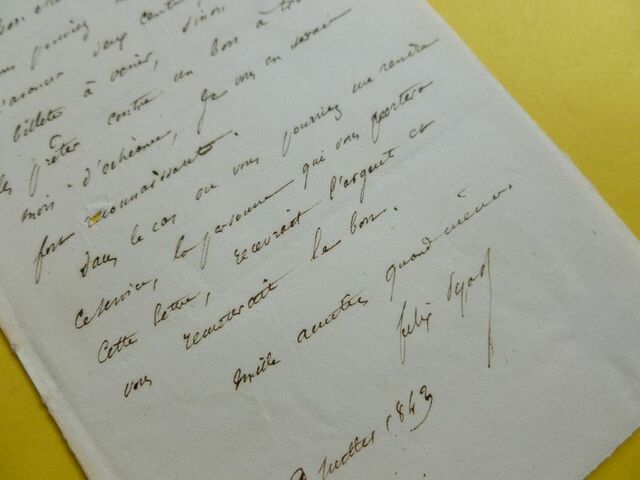 pourriez
d'avance deux cent
billets à venir, sinon
les prêter contre un bon à trois
mois d'échéance, Je vous en serais
fort reconnaissant.
Dans le cas ou vous pourriez me rendre
ce service, la personne qui vous portera
Cette lettre, recevrait l'argent et
vous remettrait le bon.
Mille amitiés quand même.
felix Pyat
juillet 1843